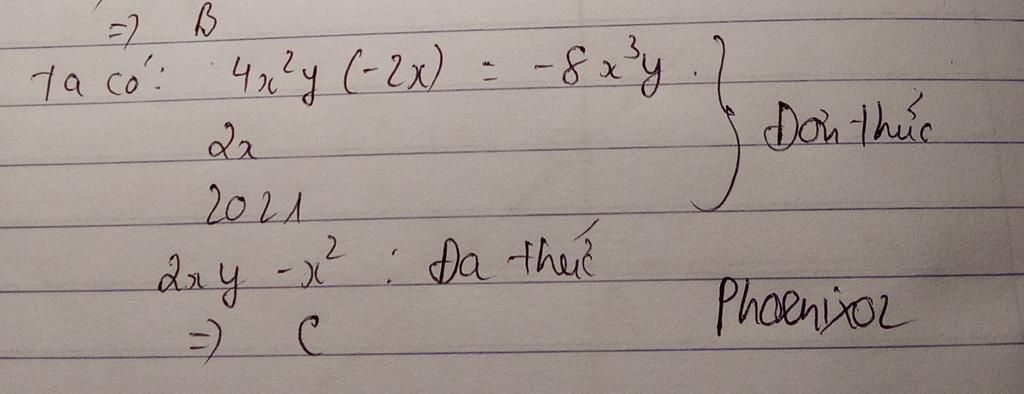 => B
Ta có: 4x²y (-2x) = -8x³y.
2x
2021
Đơn thức
2xy - x² : Đa thức
=> C
Phoenixoz